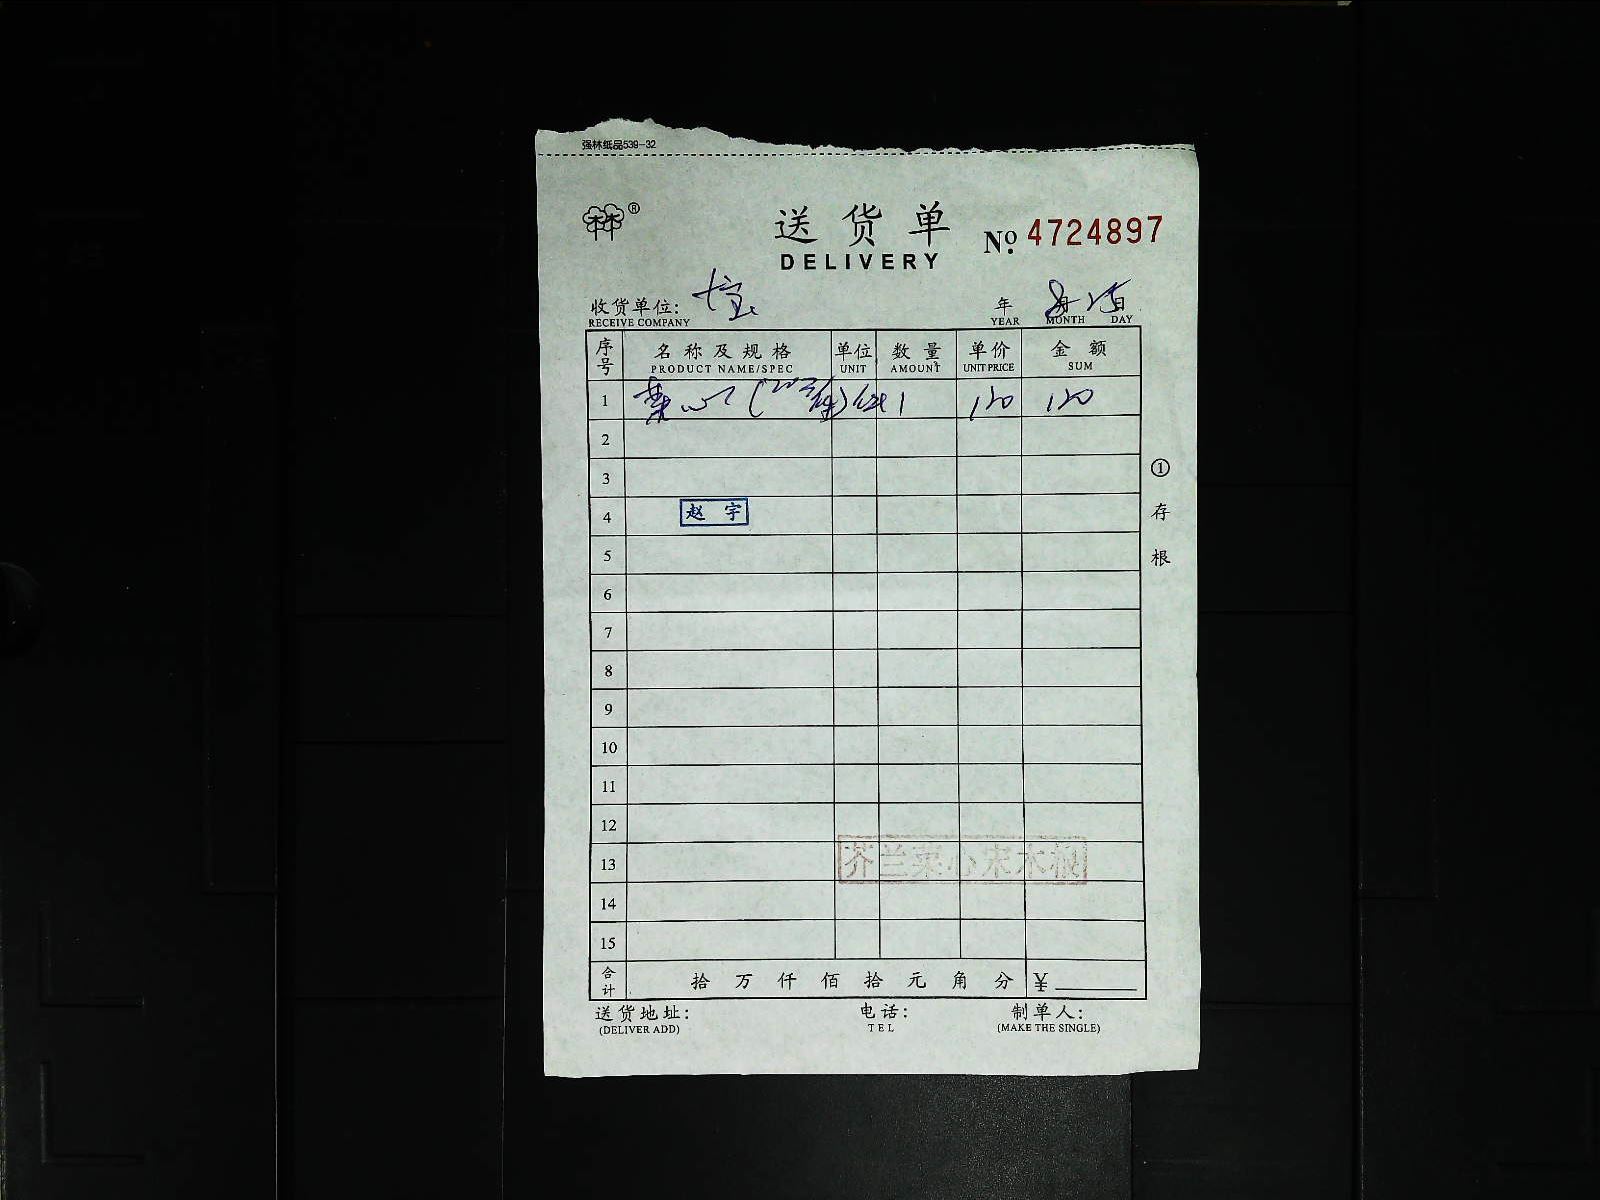 强林纸品539-32
林林®
送货单
DELIVERY
No. 4724897
收货单位: 七宝
年 8月25日
RECEIVE COMPANY YEAR MONTH DAY
序号 名称及规格 单位 数量 单价 金额
PRODUCT NAME/SPEC UNIT AMOUNT UNIT PRICE SUM
1 菜心 1 120 120
2
3
4 赵宇
5
6
7
8
9
10
11
12
13 芥兰菜心宋木根
14
15
合计 拾万仟佰拾元角分 ¥
送货地址: 电话: 制单人:
(DELIVER ADD) TEL (MAKE THE SINGLE)
①存根